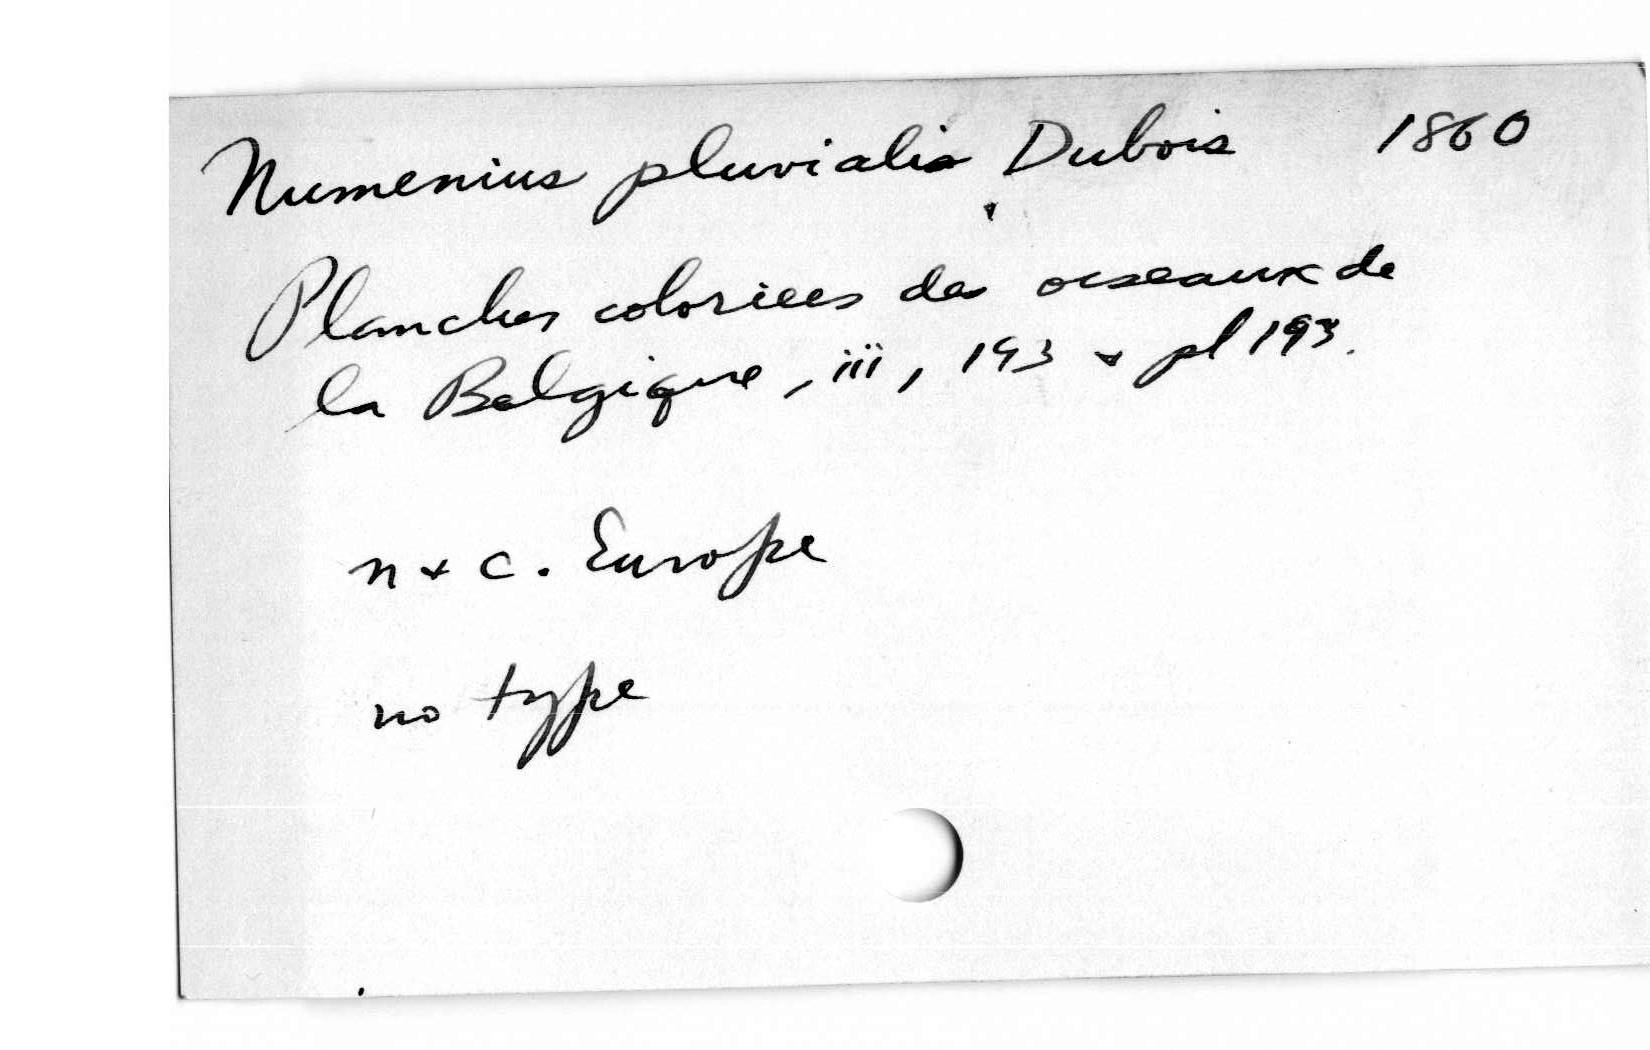 Numenius pluvialis Dubois 1860
Planches coloriees des oiseaux de
la Belgique, iii, 193 & pl 193.
n & c. Europe
no type